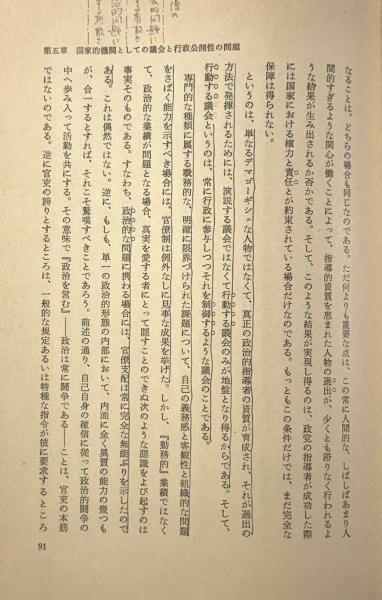 第五章　国家的機関としての議会と行政公開性の問題
なることは、どちらの場合も同じなのである。ただ何よりも重要な点は、この常に人間的な、しばしばあまり人
間的すぎるような関心が働くことによって、指導的資質を恵まれた人物の選出が、少くとも滞りなく行われるよ
うな結果が生み出されるか否かである。そして、このような結果が実現し得るのは、政党の指導者が成功した際
には国家における権力と責任とが約束されている場合だけなのである。もっともこの条件だけでは、まだ完全な
保障は得られない。
というのは、単なるデマゴーギシュな人物ではなくて、真正の政治的指導者の資質が育成され、それが選出の
方法で発揮されるためには、演説する議会ではなくて行動する議会のみが地盤となり得るからである。そして、
行動する議会というのは、常に行政に参与しつつそれを制御するような議会のことである。
専門的な種類に属する職務的な、明確に限界づけられた課題について、自己の義務感と客観性と組織的な問題
をさばく能力を示すべき場合には、官僚制は例外なしに見事な成果を挙げた。しかし、『勤務的』業績ではなく
て、政治的な業績が問題となる場合、真実を愛する者にとって隠すことのできぬ次のような認識をよび起すのは
事実そのものである。すなわち、政治的な問題に携わる場合には、官僚支配は常に完全な無能ぶりを示したので
ある。これは偶然ではない。逆に、もしも、単一の政治的形態の内部において、内面に全く異質の能力の幾つも
が、合一するとすれば、それこそ驚嘆すべきことであろう。前述の通り、自己自身の確信に従って政治的闘争の
中へ歩み入って活動を共にする。その意味で『政治を営む』――政治は常に闘争である――ことは、官吏の本筋
ではないのである。逆に官吏の誇りとするところは、一般的な規定あるいは特種な指令が彼に要求するところ
91